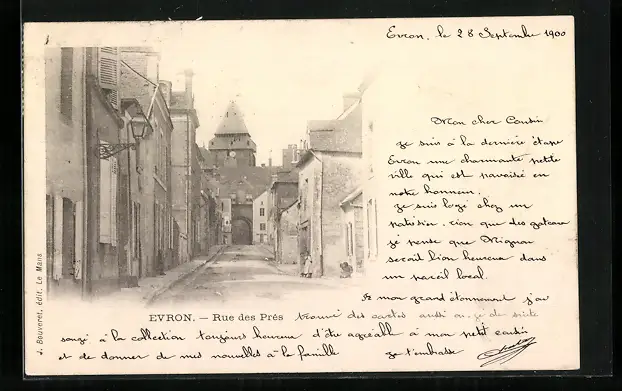 Evron, le 28 Septembre 1900
Mon cher Cousin
je suis à la dernière étape
Evron une charmante petite
ville qui est pavoisée en
notre honneur.
je suis logé chez un
patissier, rien que des gateaux
je pense que Mignon
serait bien heureux dans
un pareil local.
A mon grand étonnement j'ai
EVRON. — Rue des Prés trouvé des cartes aussi de suite
songé à la collection toujours heureux d'être agréable à mon petit cousin
et de donner de mes nouvelles à la famille je t'embrasse
J. Bouveret, édit. Le Mans